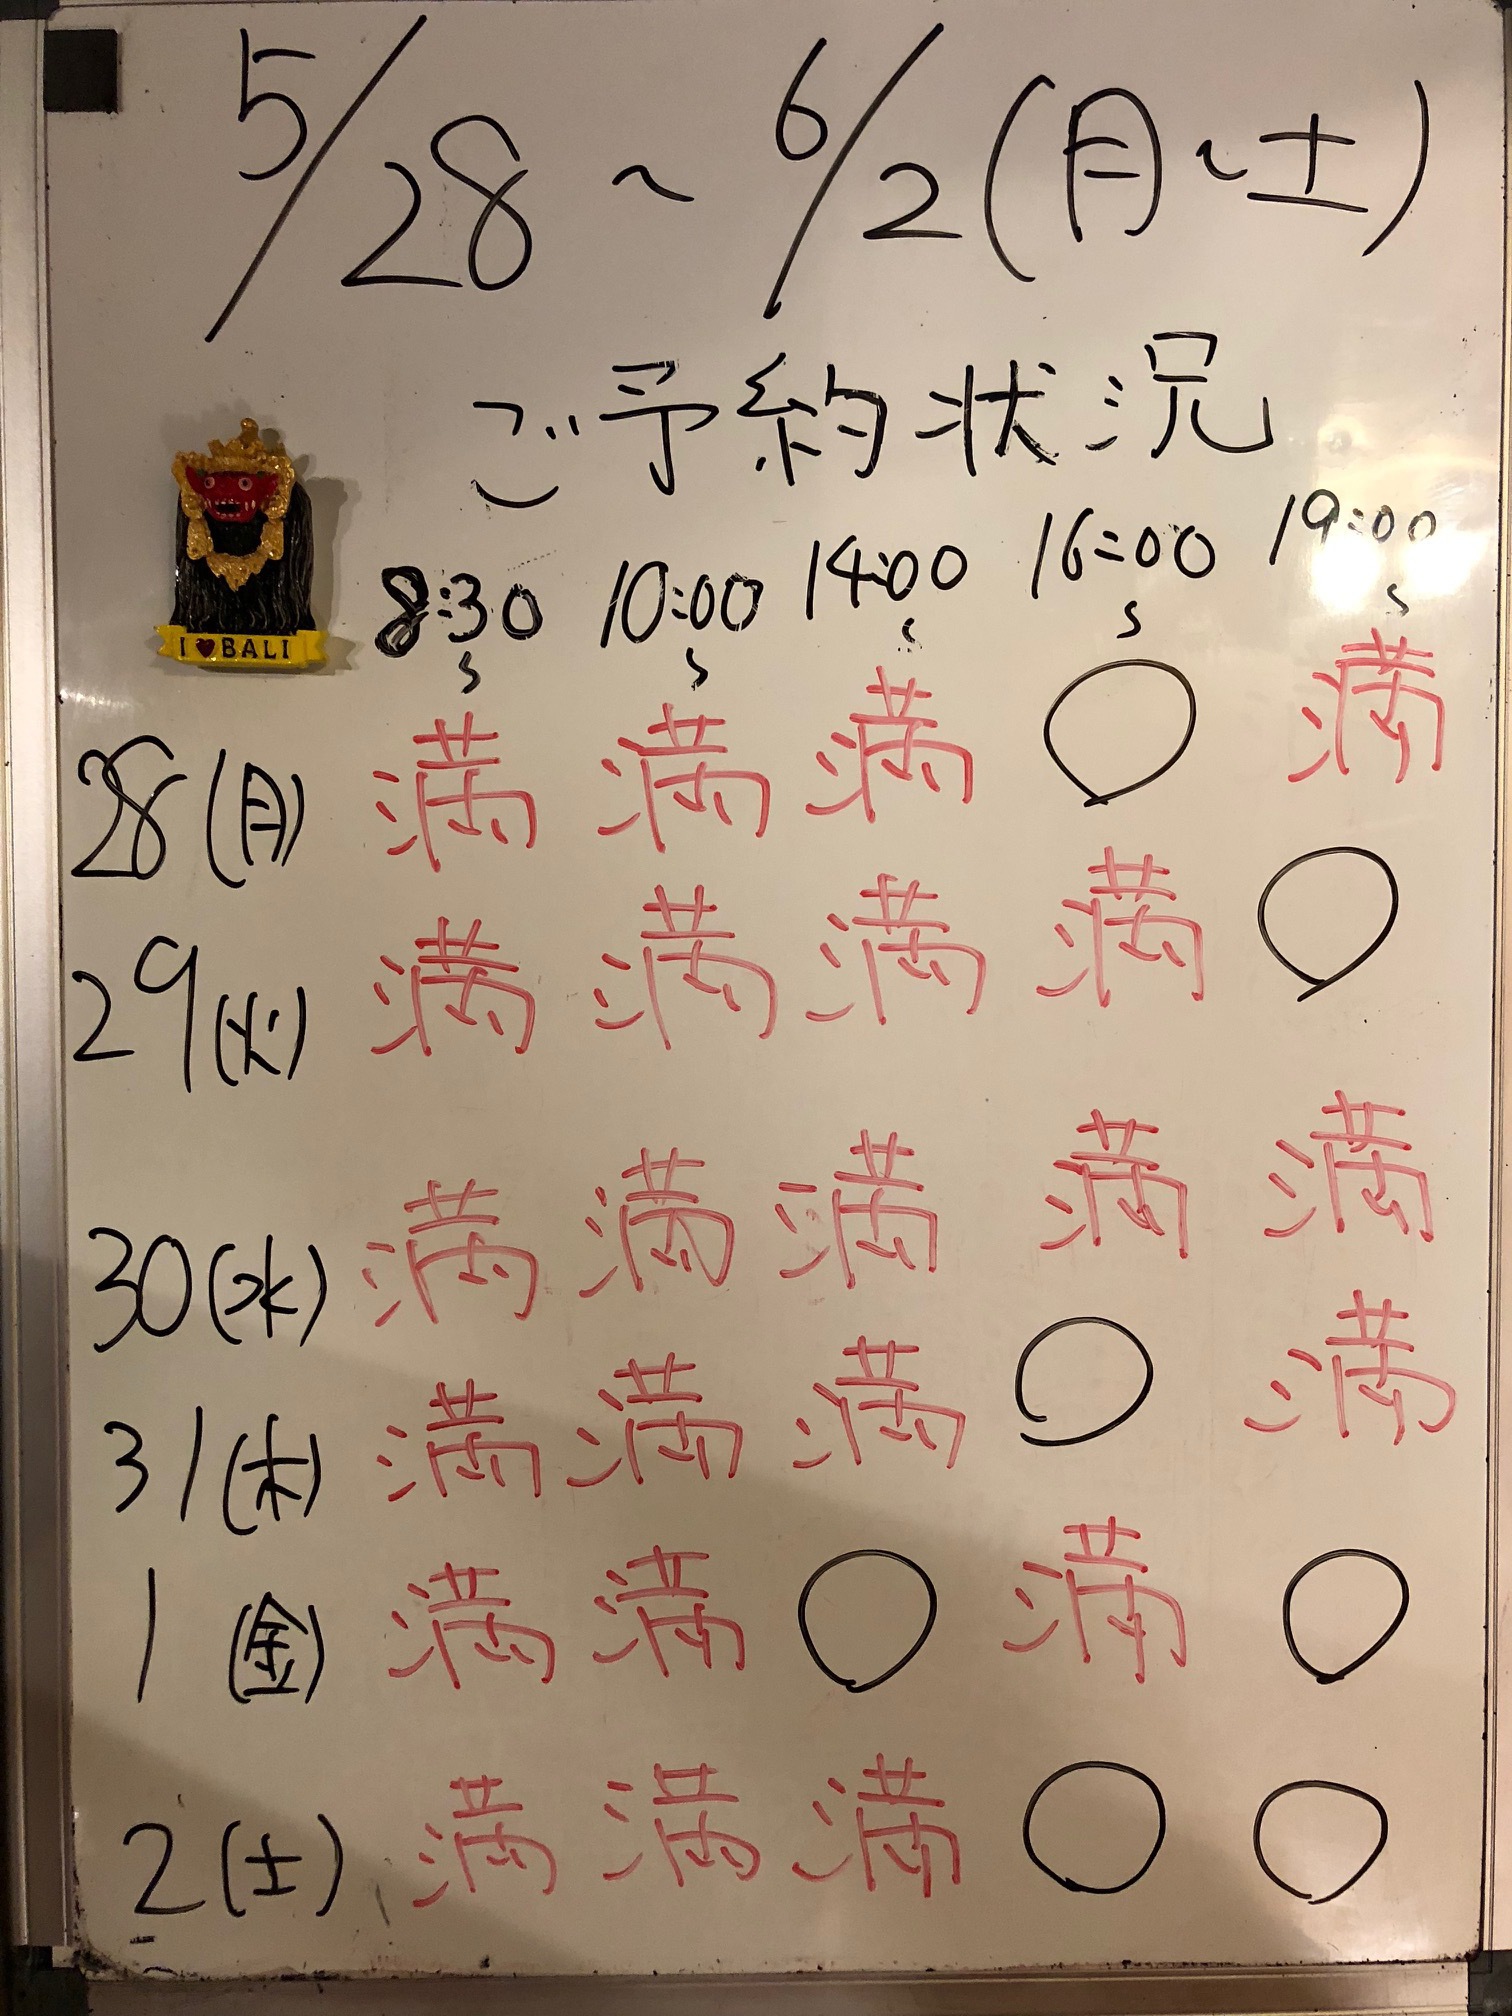 5/28 ~ 6/2 (月~土)
ご予約状況
8:30~ 10:00~ 14:00~ 16:00~ 19:00~
I ♥ BALI
28(月) 満 満 満 ○ 満
29(火) 満 満 満 満 ○
30(水) 満 満 満 満 満
31(木) 満 満 満 ○ 満
1(金) 満 満 ○ 満 ○
2(土) 満 満 満 ○ ○